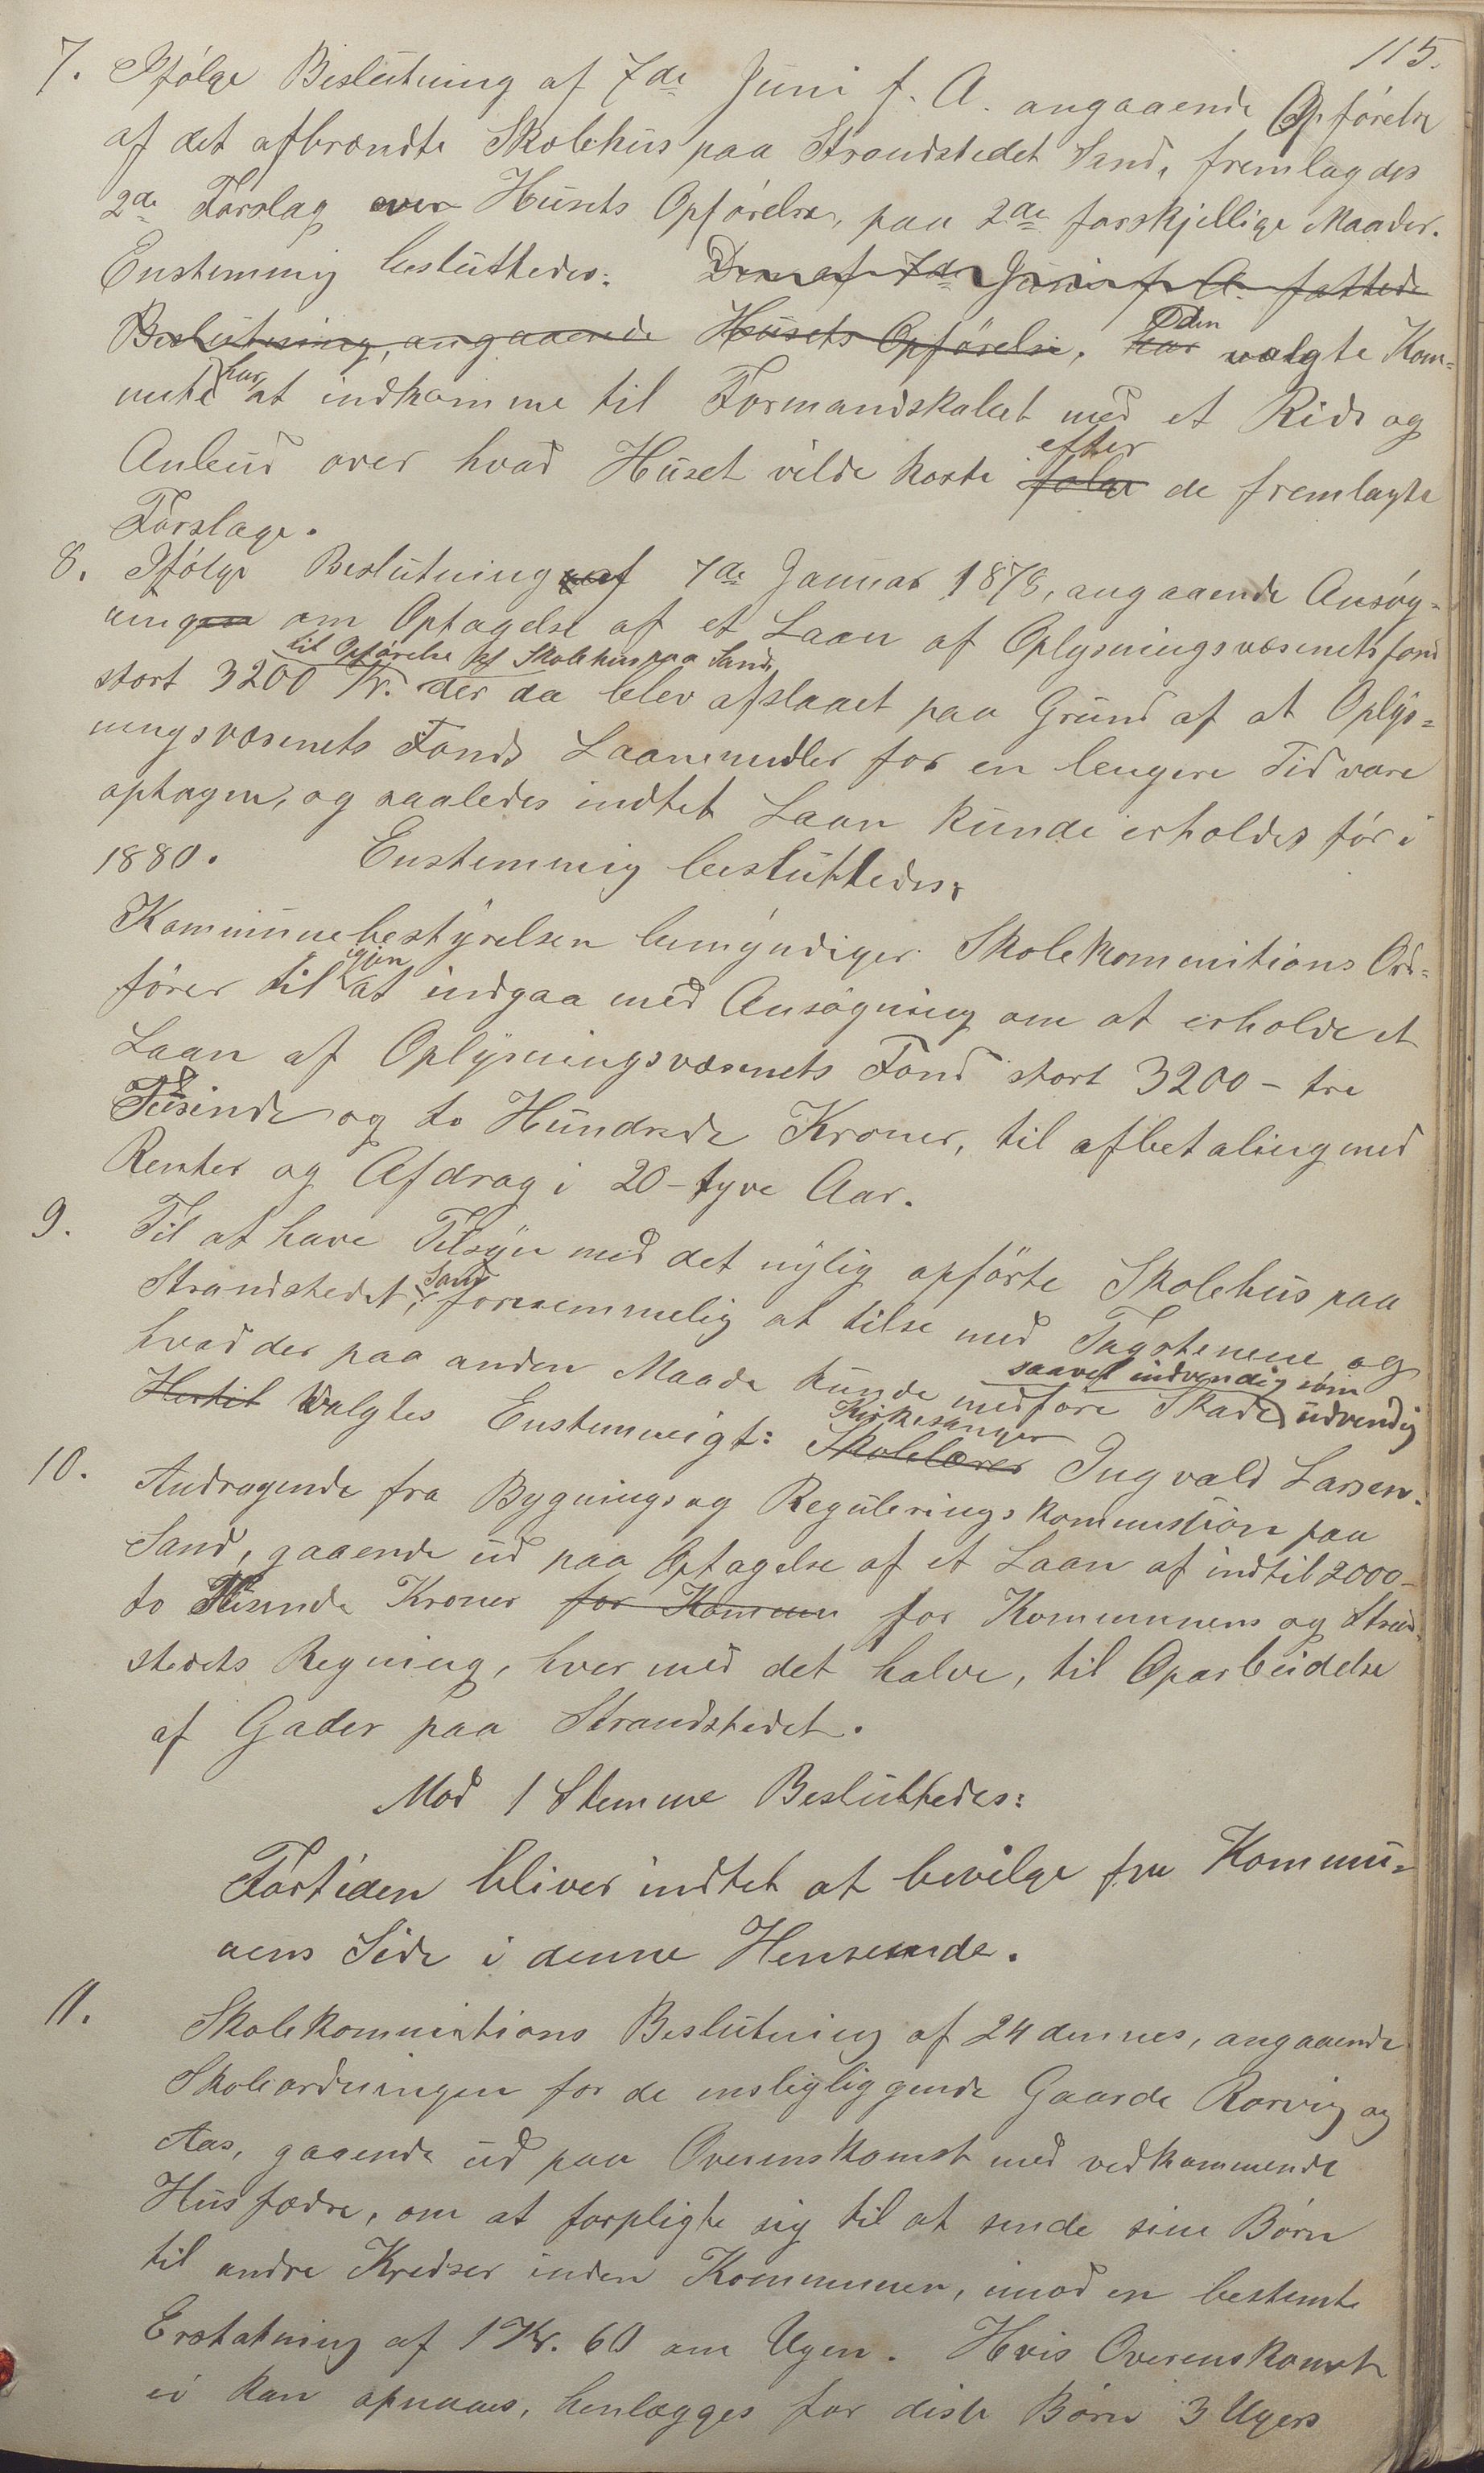 115.
7. Ifølge Beslutning af 7de Juni f. A. angaaende Opførelse
af det afbrændte Skolehus paa Strandstedet Sand, fremlagdes
2de Forslag over Husets Opførelse, paa 2de forskjellige Maader.
Enstemmig besluttedes: Den af 7de Juni f. A. fattede
Beslutning, angaaende Husets Opførelse, har Den valgte Kom-
mite har at indkomme til Formandskabet med et Rids og
Anbud over hvad Huset vilde koste efter de fremlagte
Forslage.
8. Ifølge Beslutning af 7de Januar 1878, angaaende Ansøg-
ningen om Optagelse af et Laan af Oplysningsvæsenets fond
til Opførelse af Skolehus paa Sand
stort 3200 Kr. der da blev afslaaet paa Grund af at Oplys-
ningsvæsenets Fonds Laanemidler for en længere Tid vare
optagen, og saaledes indtet Laan kunde erholdes før i
1880. Enstemmig besluttedes:
Kommunebestyrelsen bemyndiger Skolekommitions Ord-
fører til igjen at indgaa med Ansøgning om at erholde et
Laan af Oplysningsvæsenets Fond stort 3200 - tre
Tusinde og to Hundrede Kroner, til afbetaling med
Renter og Afdrag i 20 - tyve Aar.
9. Til at have Tilsyn med det nylig opførte Skolehus paa
Strandstedet Sand, fornemmelig at tilse med Tagstenene og
hvad der paa anden Maade kunde medføre Skade saavel indvendig som udvendig
Hertil Valgtes Enstemmigt: Skolelærer Kirkesanger Ingvald Larsen.
10. Andragende fra Bygnings og Reguleringskommission paa
Sand, gaaende ud paa Optagelse af et Laan af indtil 2000 -
to Tusinde Kroner for Kommun for Kommunens og Strand-
stedets Regning, hver med det halve, til Oparbeidelse
af Gader paa Strandstedet.
Mod 1 Stemme Besluttedes:
Fortiden bliver indtet at bevilge fra Kommu-
nens Side i denne Henseende.
11. Skolekommitions Beslutning af 24 dennes, angaaende
Skoleordningen for de ensligliggende Gaarde Rørvig og
Aas, gaaende ud paa Overenskomst med vedkommende
Husfædre, om at forpligte sig til at sende sine Børn
til andre Kredser inden Kommunen, imod en bestemt
Erstatning af 1 Kr. 60 om Ugen. Hvis Overenskomst
ei kan opnaaes, henlægges for disse Børn 3 Ugers